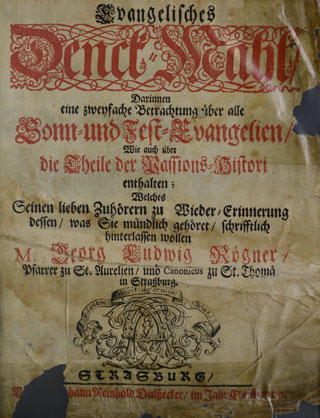 Evangelisches
Denck-Mahl/
Darinnen
eine zweyfache Betrachtung über alle
Sonn-und Fest-Evangelien/
Wie auch über
die Theile der Passions-Histori
enthalten;
Welches
Seinen lieben Zuhörern zu Wieder-Erinnerung
dessen/ was Sie mündlich gehöret/ schrifftlich
hinterlassen wollen
M. Georg Ludwig Rögner/
Pfarrer zu St. Aurelien/ und Canonicus zu St. Thomä
in Straßburg.
STRASBURG/
Johann Reinhold Dulßecker/ im Jahr